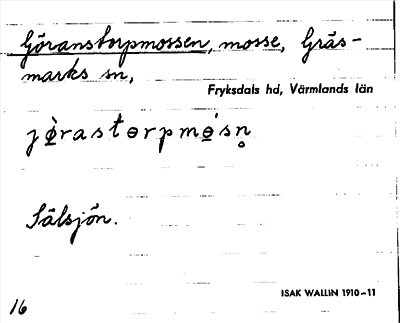 Göranstorpmossen, mosse, Gräs-
marks sn,
Fryksdals hd, Värmlands län
jø̀rastɵrpmɵ̀sn̥
Sälsjön.
ISAK WALLIN 1910–11
16